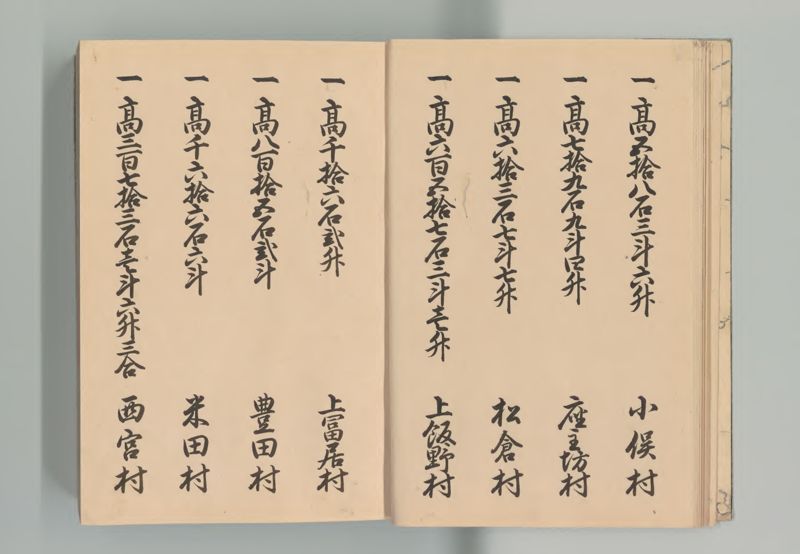 一高五拾八石三斗六升 小俣村
一高七拾九石九斗四升 座主坊村
一高六拾三石七斗七升 松倉村
一高六百五拾七石三斗壱升 上飯野村
一高千拾六石弐升 上冨居村
一高八百拾五石弐斗 豊田村
一高千六拾六石六斗 米田村
一高三百七拾三石壱斗六升三合 西宮村